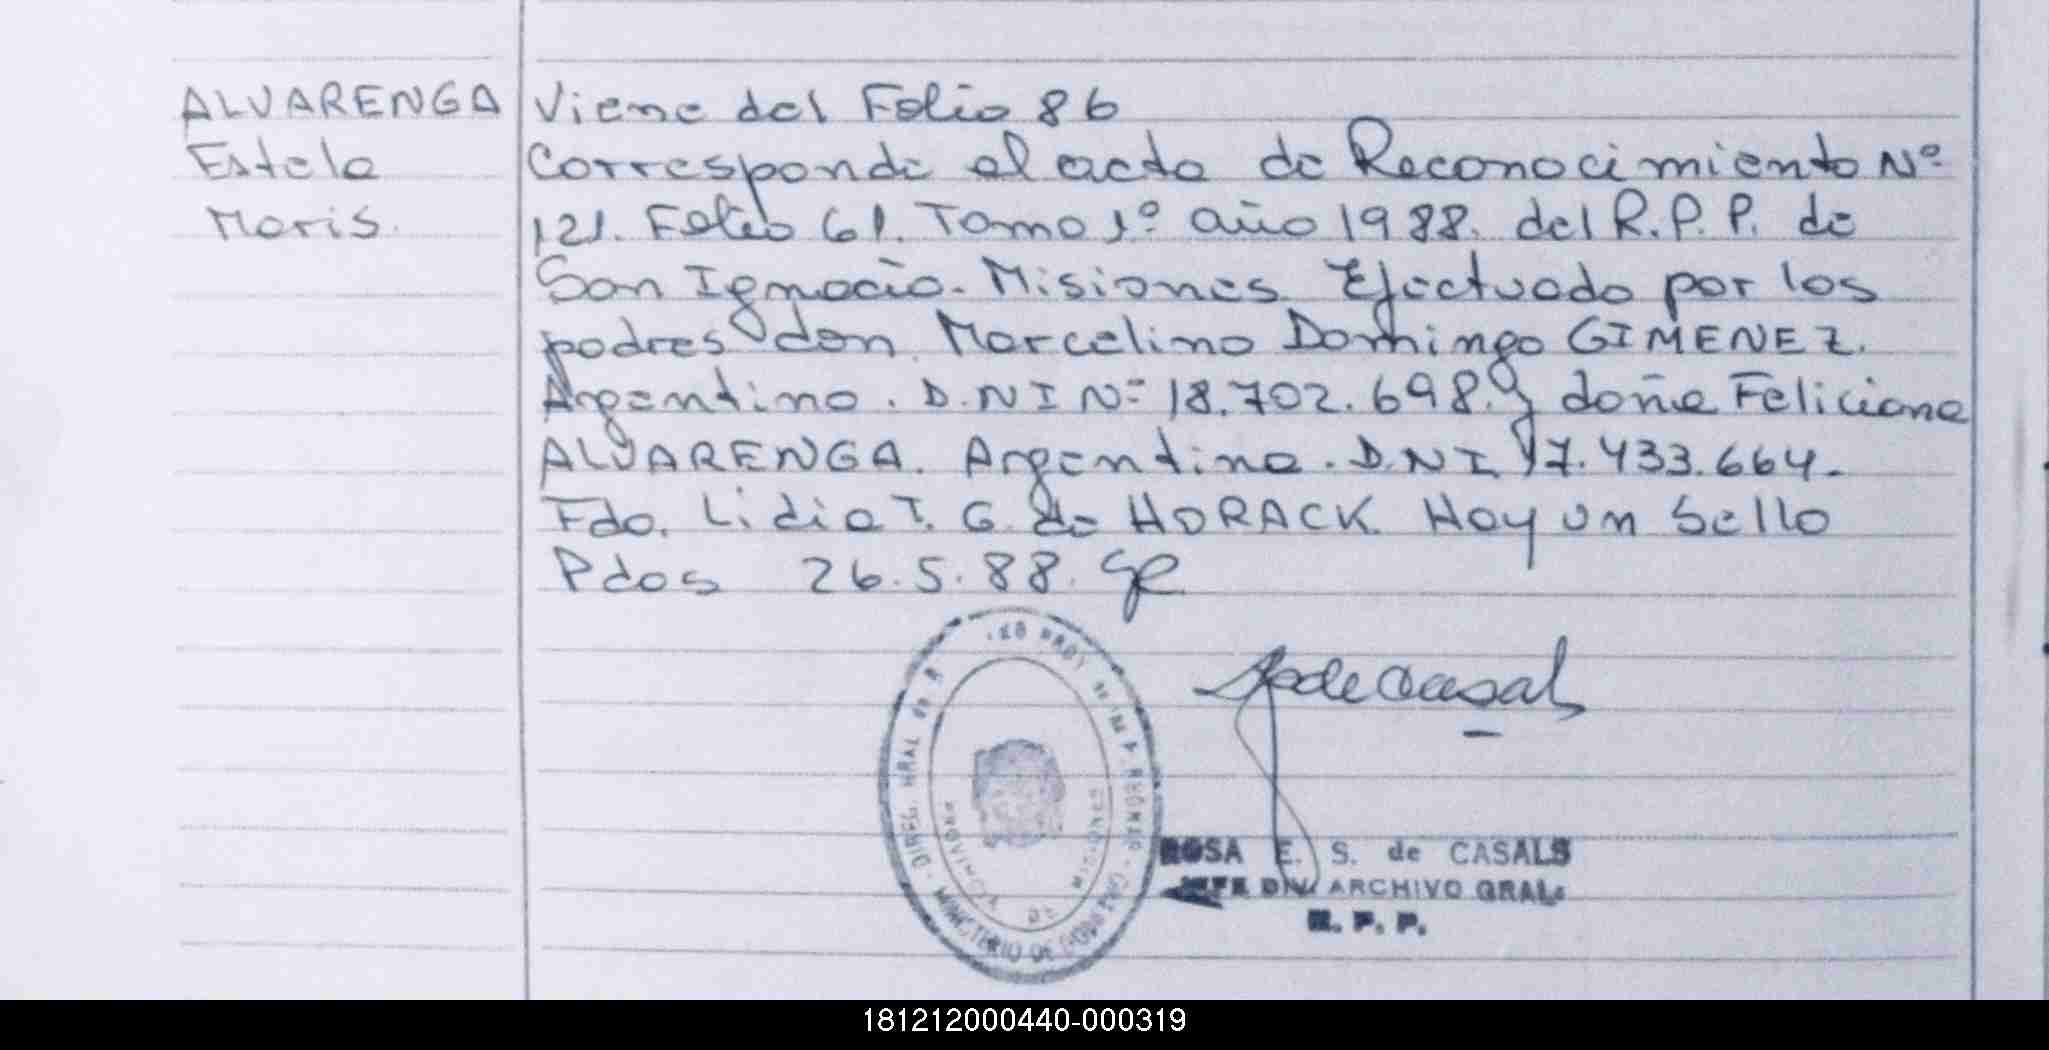 ALVARENGA
Estela
Maris.
Viene del Folio 86
Corresponde al acta de Reconocimiento Nº
121. Folio 61. Tomo 1º año 1988. del R.P.P. de
San Ignacio. Misiones. Efectuado por los
padres don Marcelino Domingo GIMENEZ.
Argentino. D.N I Nº 18.702.698. y doña Feliciana
ALVARENGA. Argentina. D.N I 17.433.664.
Fdo. Lidia T. G. de HORACK. Hay un Sello
Pdos 26.5.88.
DIREG. GRAL de
MINISTERIO DE GOBIERNO
PROVINCIA DE MISIONES
ROSA E. S. de CASALS
JEFE DIV. ARCHIVO GRAL.
R. P. P.
181212000440-000319